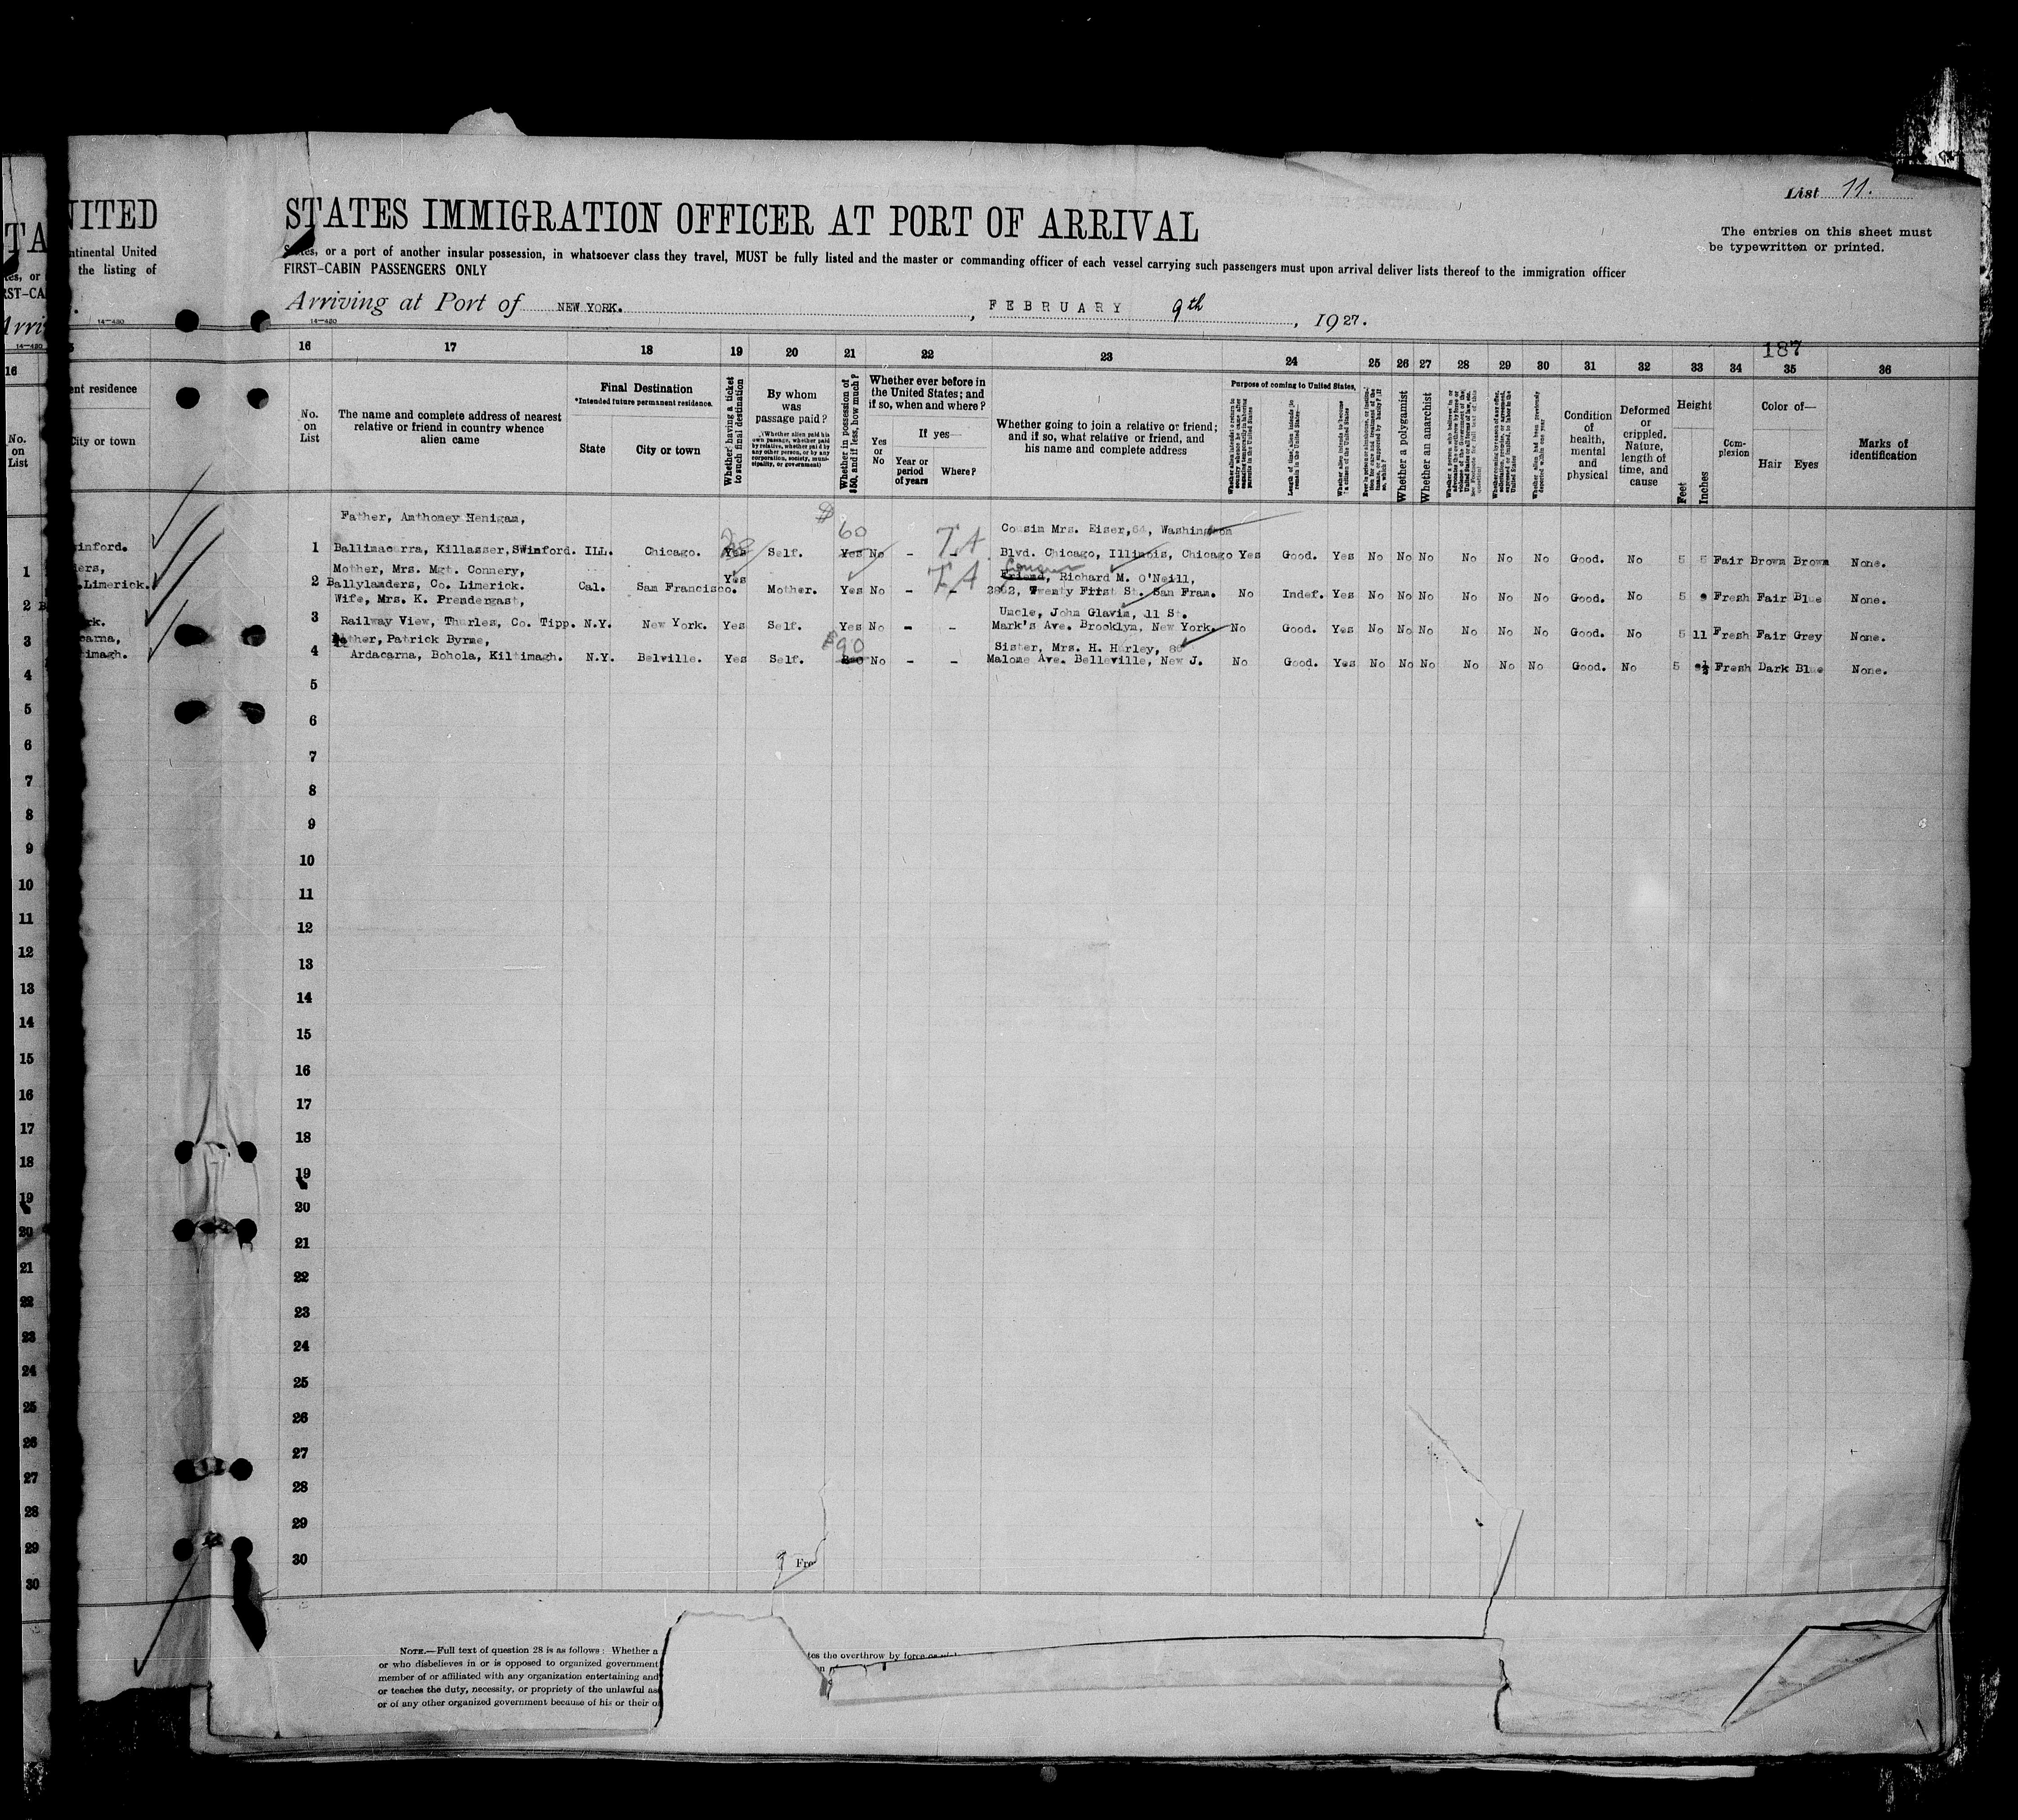 List 11.
UNITED STATES IMMIGRATION OFFICER AT PORT OF ARRIVAL
The entries on this sheet must
be typewritten or printed.
ntinental United States, or a port of another insular possession, in whatsoever class they travel, MUST be fully listed and the master or commanding officer of each vessel carrying such passengers must upon arrival deliver lists thereof to the immigration officer
the listing of FIRST-CABIN PASSENGERS ONLY
Arriving at Port of NEW YORK. , FEBRUARY 9th , 1927.
14-430
187
16 17 18 19 20 21 22 23 24 25 26 27 28 29 30 31 32 33 34 35 36
No. on List
The name and complete address of nearest relative or friend in country whence alien came
Final Destination
*Intended future permanent residence.
State City or town
Whether having a ticket to such final destination
By whom was passage paid?
(Whether alien paid his own passage, whether paid by relative, whether paid by any other person, or by any corporation, society, municipality, or government)
Whether in possession of $50, and if less, how much?
Whether ever before in the United States; and if so, when and where?
Yes or No
If yes—
Year or period of years
Where?
Whether going to join a relative or friend; and if so, what relative or friend, and his name and complete address
Purpose of coming to United States.
Length of time alien intends to remain in the United States—
Whether alien intends to become a citizen of the United States
Whether a polygamist
Whether an anarchist
Condition of health, mental and physical
Deformed or crippled. Nature, length of time, and cause
Height
Feet Inches
Complexion
Color of—
Hair Eyes
Marks of identification
ent residence
City or town
winford.
ders,
.Limerick.
rk.
carna,
timagh.
Father, Anthoney Henigan, $ 60 Cousin Mrs. Eiser,64, Washington
1 Ballinacurra, Killasser,Swinford. ILL. Chicago. Yes Self. Yes No - TA - Blvd. Chicago, Illinois, Chicago Yes Good. Yes No No No No No No Good. No 5 5 Fair Brown Brown None.
Mother, Mrs. Mgt. Connery, Yes TA Cousin Friend, Richard M. O'Neill,
2 Ballylanders, Co. Limerick. Cal. San Francisco. Mother. Yes No - - 2862, Twenty First St. San Fran. No Indef. Yes No No No No No No Good. No 5 Fresh Fair Blue None.
Wife, Mrs. K. Prendergast, Uncle, John Glavin, 11 St.
3 Railway View, Thurles, Co. Tipp. N.Y. New York. Yes Self. Yes No - - Mark's Ave. Brooklyn, New York. No Good. Yes No No No No No No Good. No 5 11 Fresh Fair Grey None.
Father, Patrick Byrne, $90 Sister, Mrs. H. Harley, 86
4 Ardacarna, Bohola, Kiltimagh. N.Y. Belville. Yes Self. No - - Malone Ave. Belleville, New J. No Good. Yes No No No No No No Good. No 5 Fresh Dark Blue None.
5
6
7
8
9
10
11
12
13
14
15
16
17
18
19
20
21
22
23
24
25
26
27
28
29
30
Fro
NOTE.—Full text of question 28 is as follows: Whether a
tes the overthrow by force or
or who disbelieves in or is opposed to organized government
member of or affiliated with any organization entertaining and
or teaches the duty, necessity, or propriety of the unlawful as
or of any other organized government because of his or their o